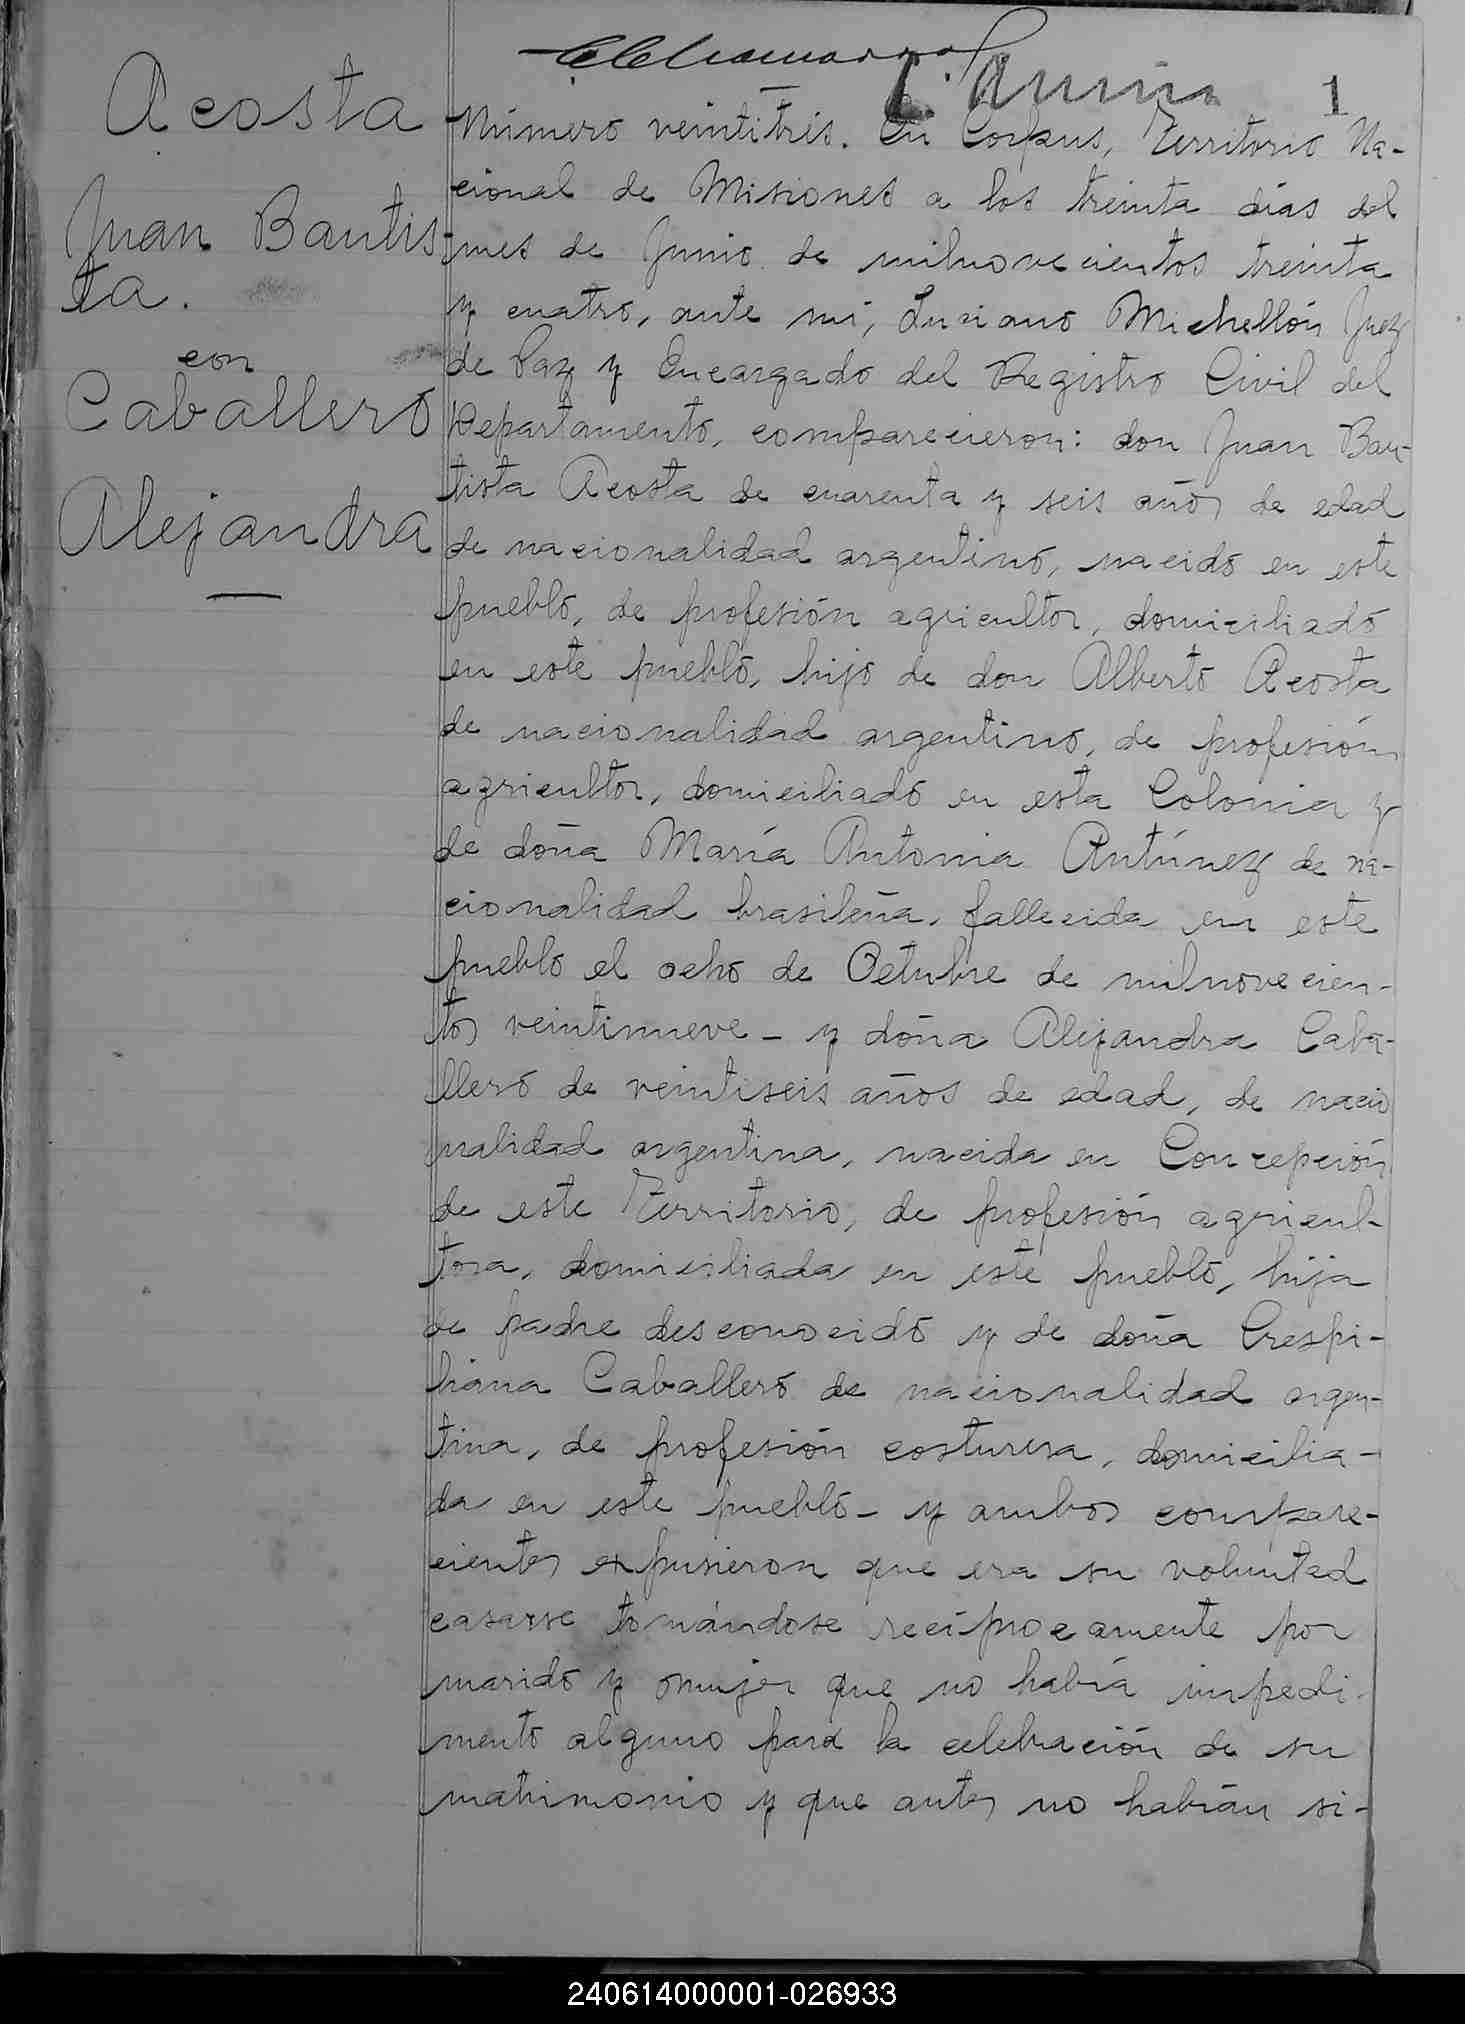 1
Acosta
Juan Bautis-
ta.
con
Caballero
Alejandra
Número veintitrés. En Corpus, Territorio Na-
cional de Misiones a los treinta días del
mes de Junio de milnovecientos treinta
y cuatro, ante mí, Luciano Michellón Juez
de Paz y Encargado del Registro Civil del
Departamento, comparecieron: don Juan Bau-
tista Acosta de cuarenta y seis años de edad
de nacionalidad argentino, nacido en este
pueblo, de profesión agricultor, domiciliado
en este pueblo, hijo de don Alberto Acosta
de nacionalidad argentino, de profesión
agricultor, domiciliado en esta Colonia y
de doña María Antonia Antúnez de na-
cionalidad brasileña, fallecida en este
pueblo el ocho de Octubre de milnovecien-
tos veintinueve - y doña Alejandra Caba-
llero de veintiseis años de edad, de nacio
nalidad argentina, nacida en Concepción
de este Territorio, de profesión agricul-
tora, domiciliada en este pueblo, hija
de padre desconocido y de doña Crespi-
niana Caballero de nacionalidad argen-
tina, de profesión costurera, domicilia-
da en este pueblo - y ambos compare-
cientes expusieron que era su voluntad
casarse tomándose recíprocamente por
marido y mujer que no había impedi-
mento alguno para la celebración de su
matrimonio y que antes no habían si-
240614000001-026933